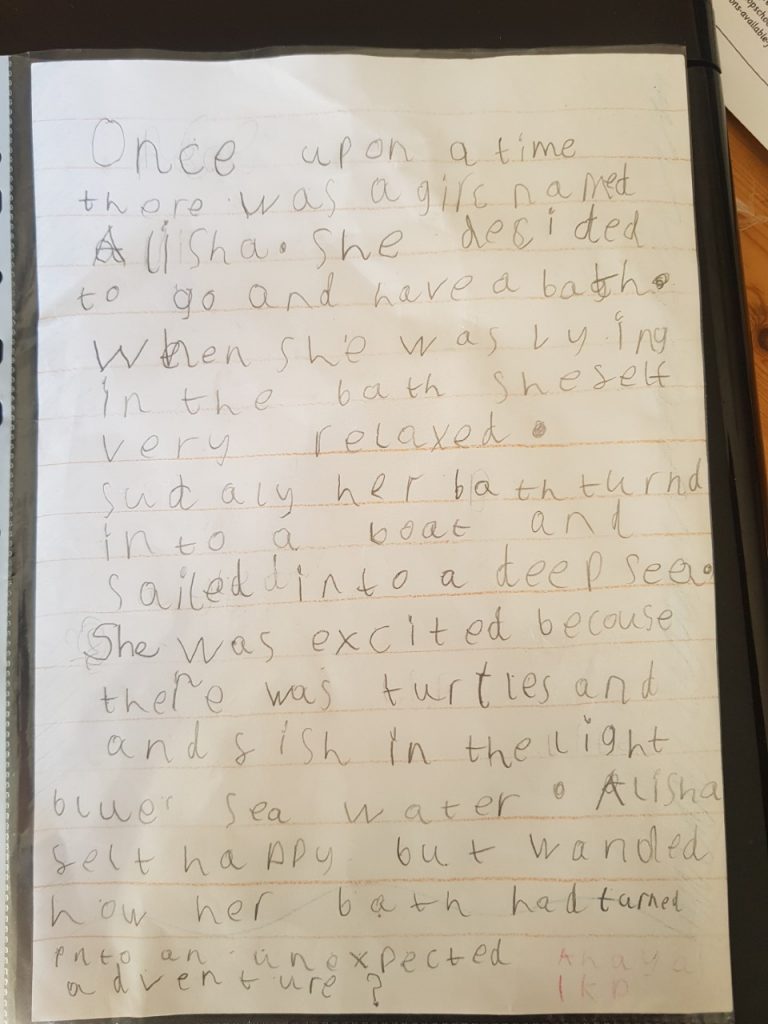 Once upon a time
there was a girl named
Alisha. She decided
to go and have a bath.
When she was lying
in the bath she selt
very relaxed.
sudaly her bath turnd
into a boat and
sailed into a deep sea.
She was excited becouse
there was turtles and
and sish in the light
blue sea water. Alisha
selt happy but wanded
how her bath had turned
into an unexpected Anaya
adventure?